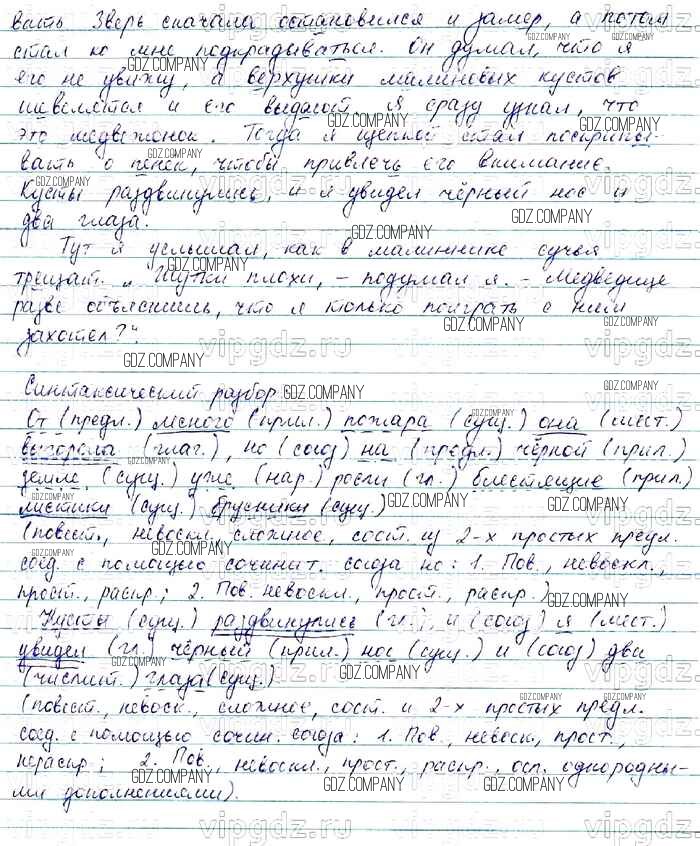 вать Зверь сначала остановился и замер, а потом
стал ко мне подкрадываться. Он думал, что я
его не увижу, а верхушки малиновых кустов
шевелятся и его выдают. Я сразу узнал, что
это медвежонок. Тогда я щепкой стал постукивать
вать о пенёк, чтобы привлечь его внимание.
Кусты раздвинулись, и я увидел чёрный нос и
два глаза.
Тут я услышал, как в малиннике сучья
трещат. „Шутки плохи, – подумал я. – Медведице
разве объяснишь, что я только поиграть с ним
захотел?“
Синтаксический разбор
От (предл.) лесного (прил.) пожара (сущ.) она (мест.)
выгорела (глаг.), но (союз) на (предл.) чёрной (прил.)
земле (сущ.) уже (нар.) росли (гл.) блестящие (прил.)
листики (сущ.) брусники (сущ.)
(повест., невоскл., сложное, сост. из 2-х простых предл.
соед. с помощью сочинит. союза но: 1. Пов., невоскл.,
прост., распр.; 2. Пов. невоскл., прост., распр.)
Кусты (сущ.) раздвинулись (гл.), и (союз) я (мест.)
увидел (гл.) чёрный (прил.) нос (сущ.) и (союз) два
(числит.) глаза (сущ.)
(повест., невоск., сложное, сост. и 2-х простых предл.
соед. с помощью сочин. союза: 1. Пов., невоск., прост.,
нераспр; 2. Пов., невоскл., прост., распр., осл. однородны-
ми дополнениями).
GDZ.COMPANY
vipgdz.ru